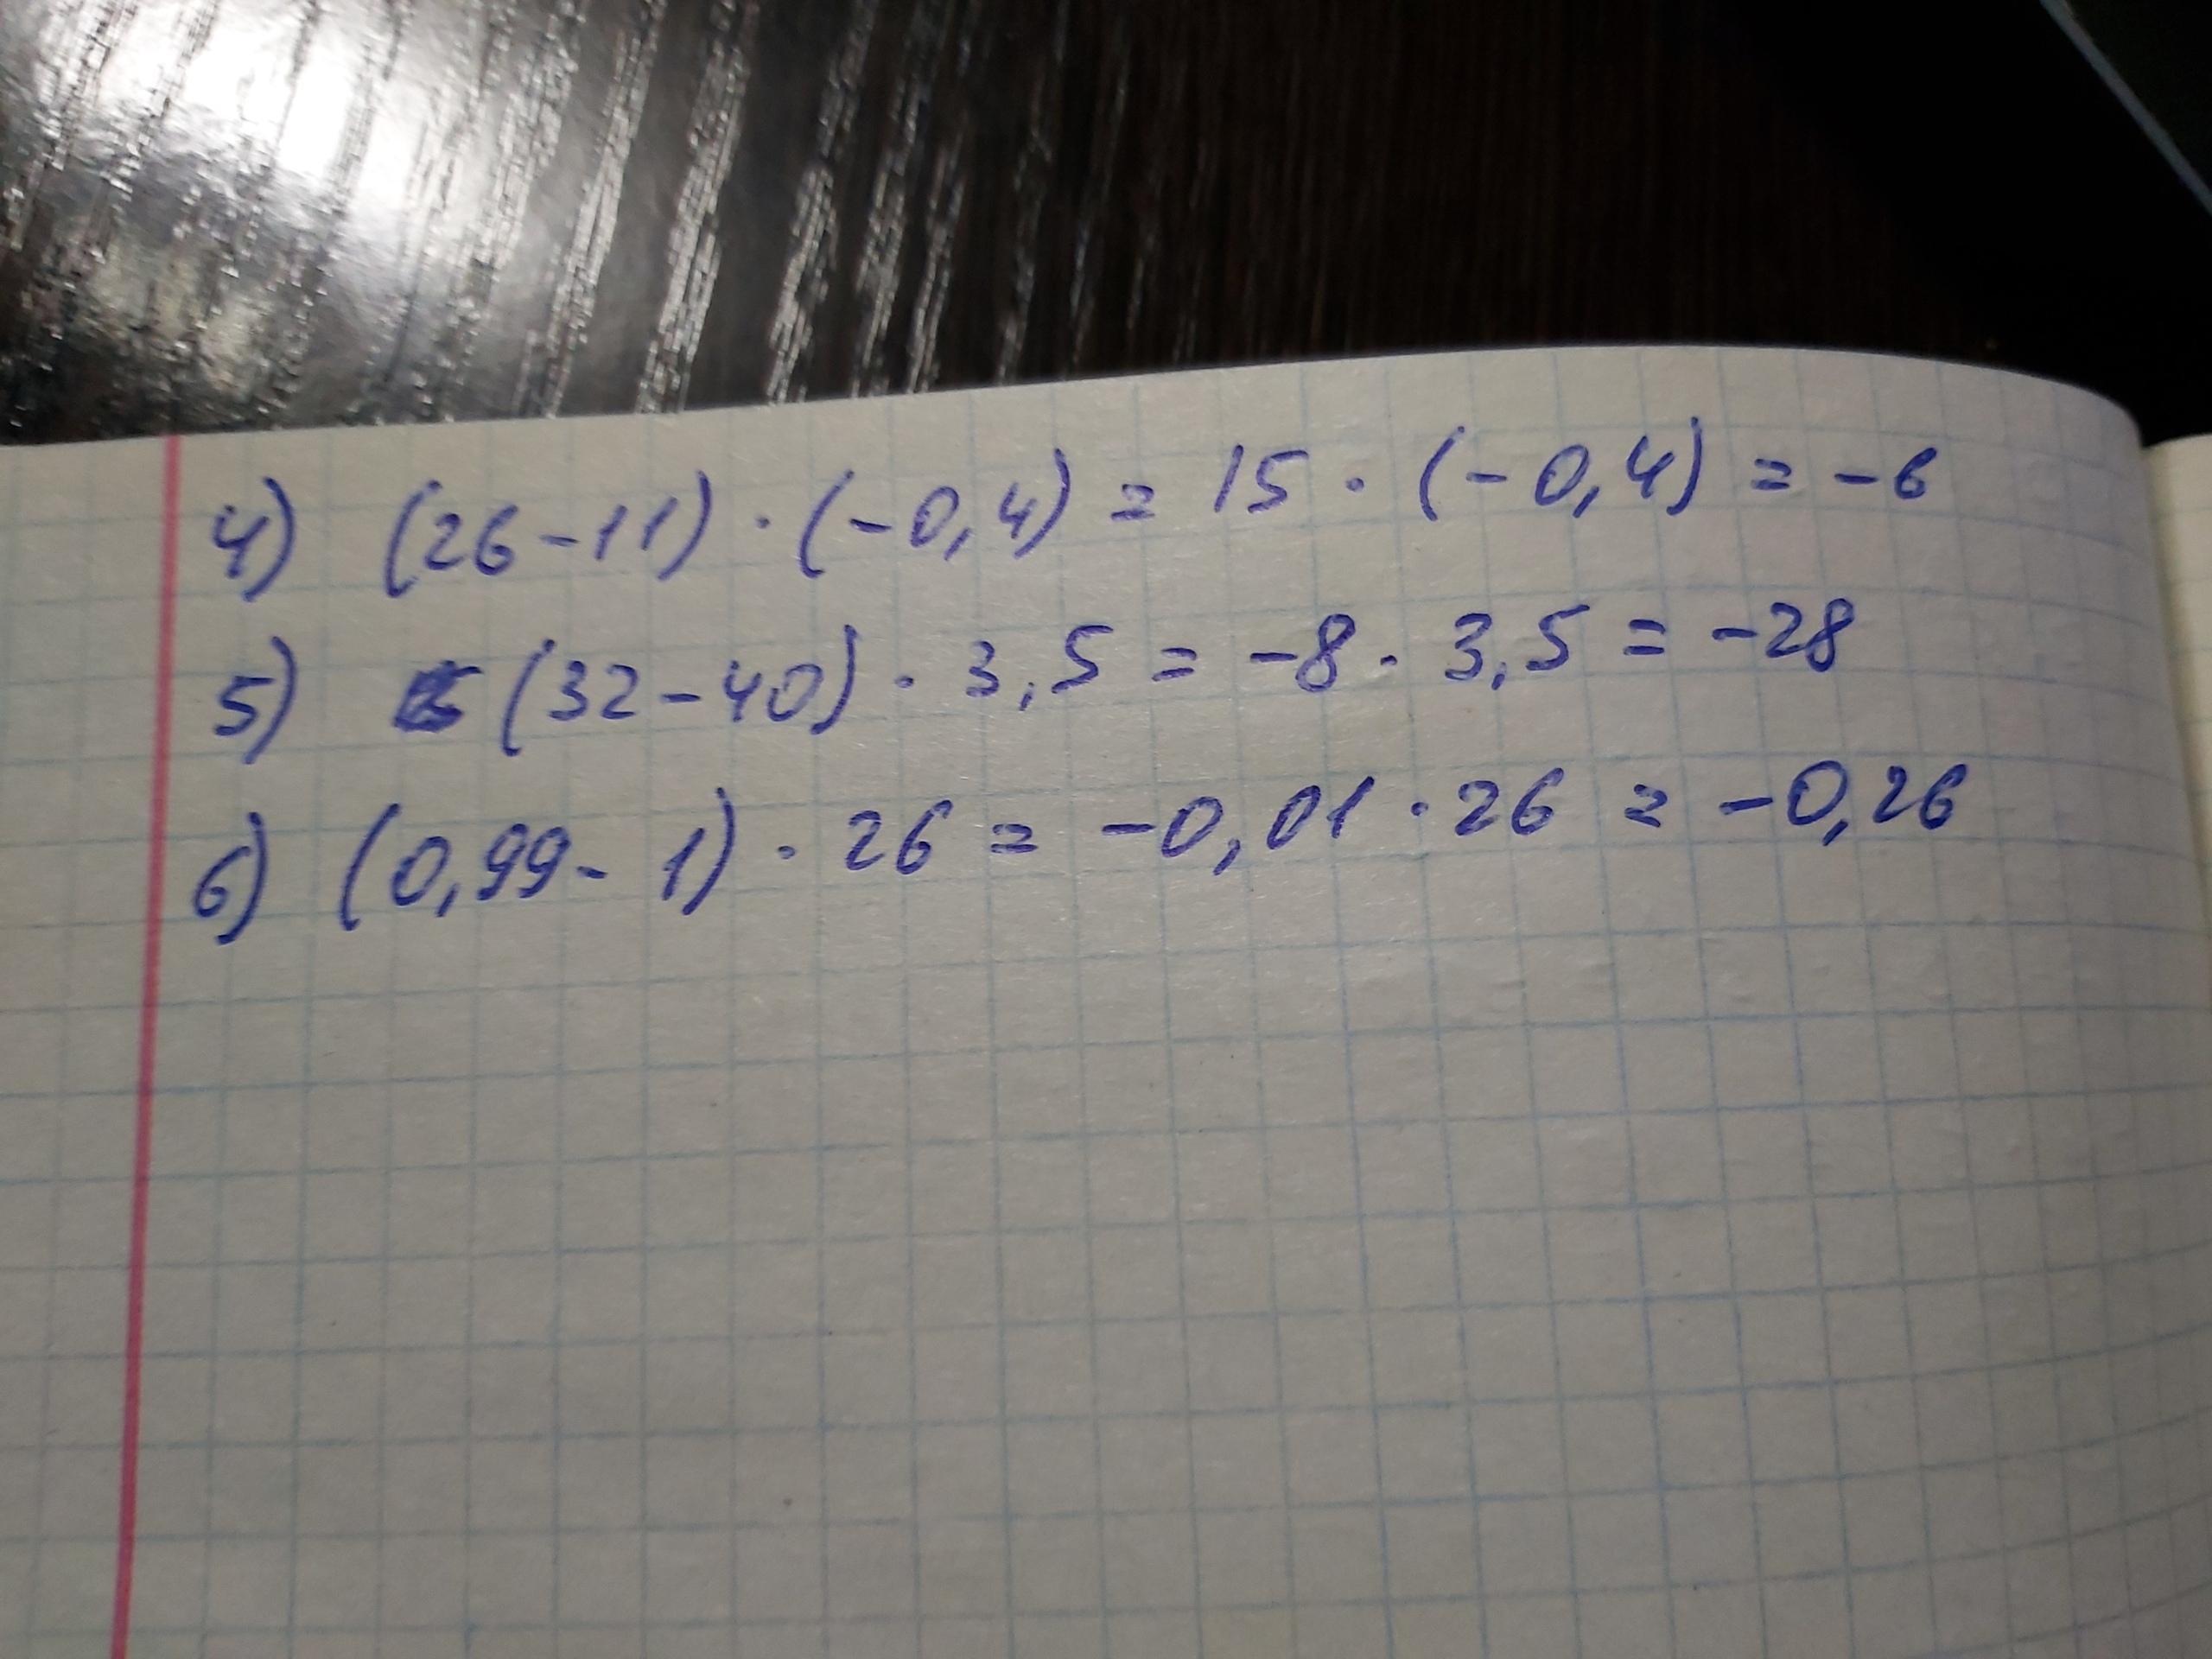 4) (26-11)·(-0,4) = 15·(-0,4) = -6
5) (32-40)·3,5 = -8·3,5 = -28
6) (0,99-1)·26 = -0,01·26 = -0,26